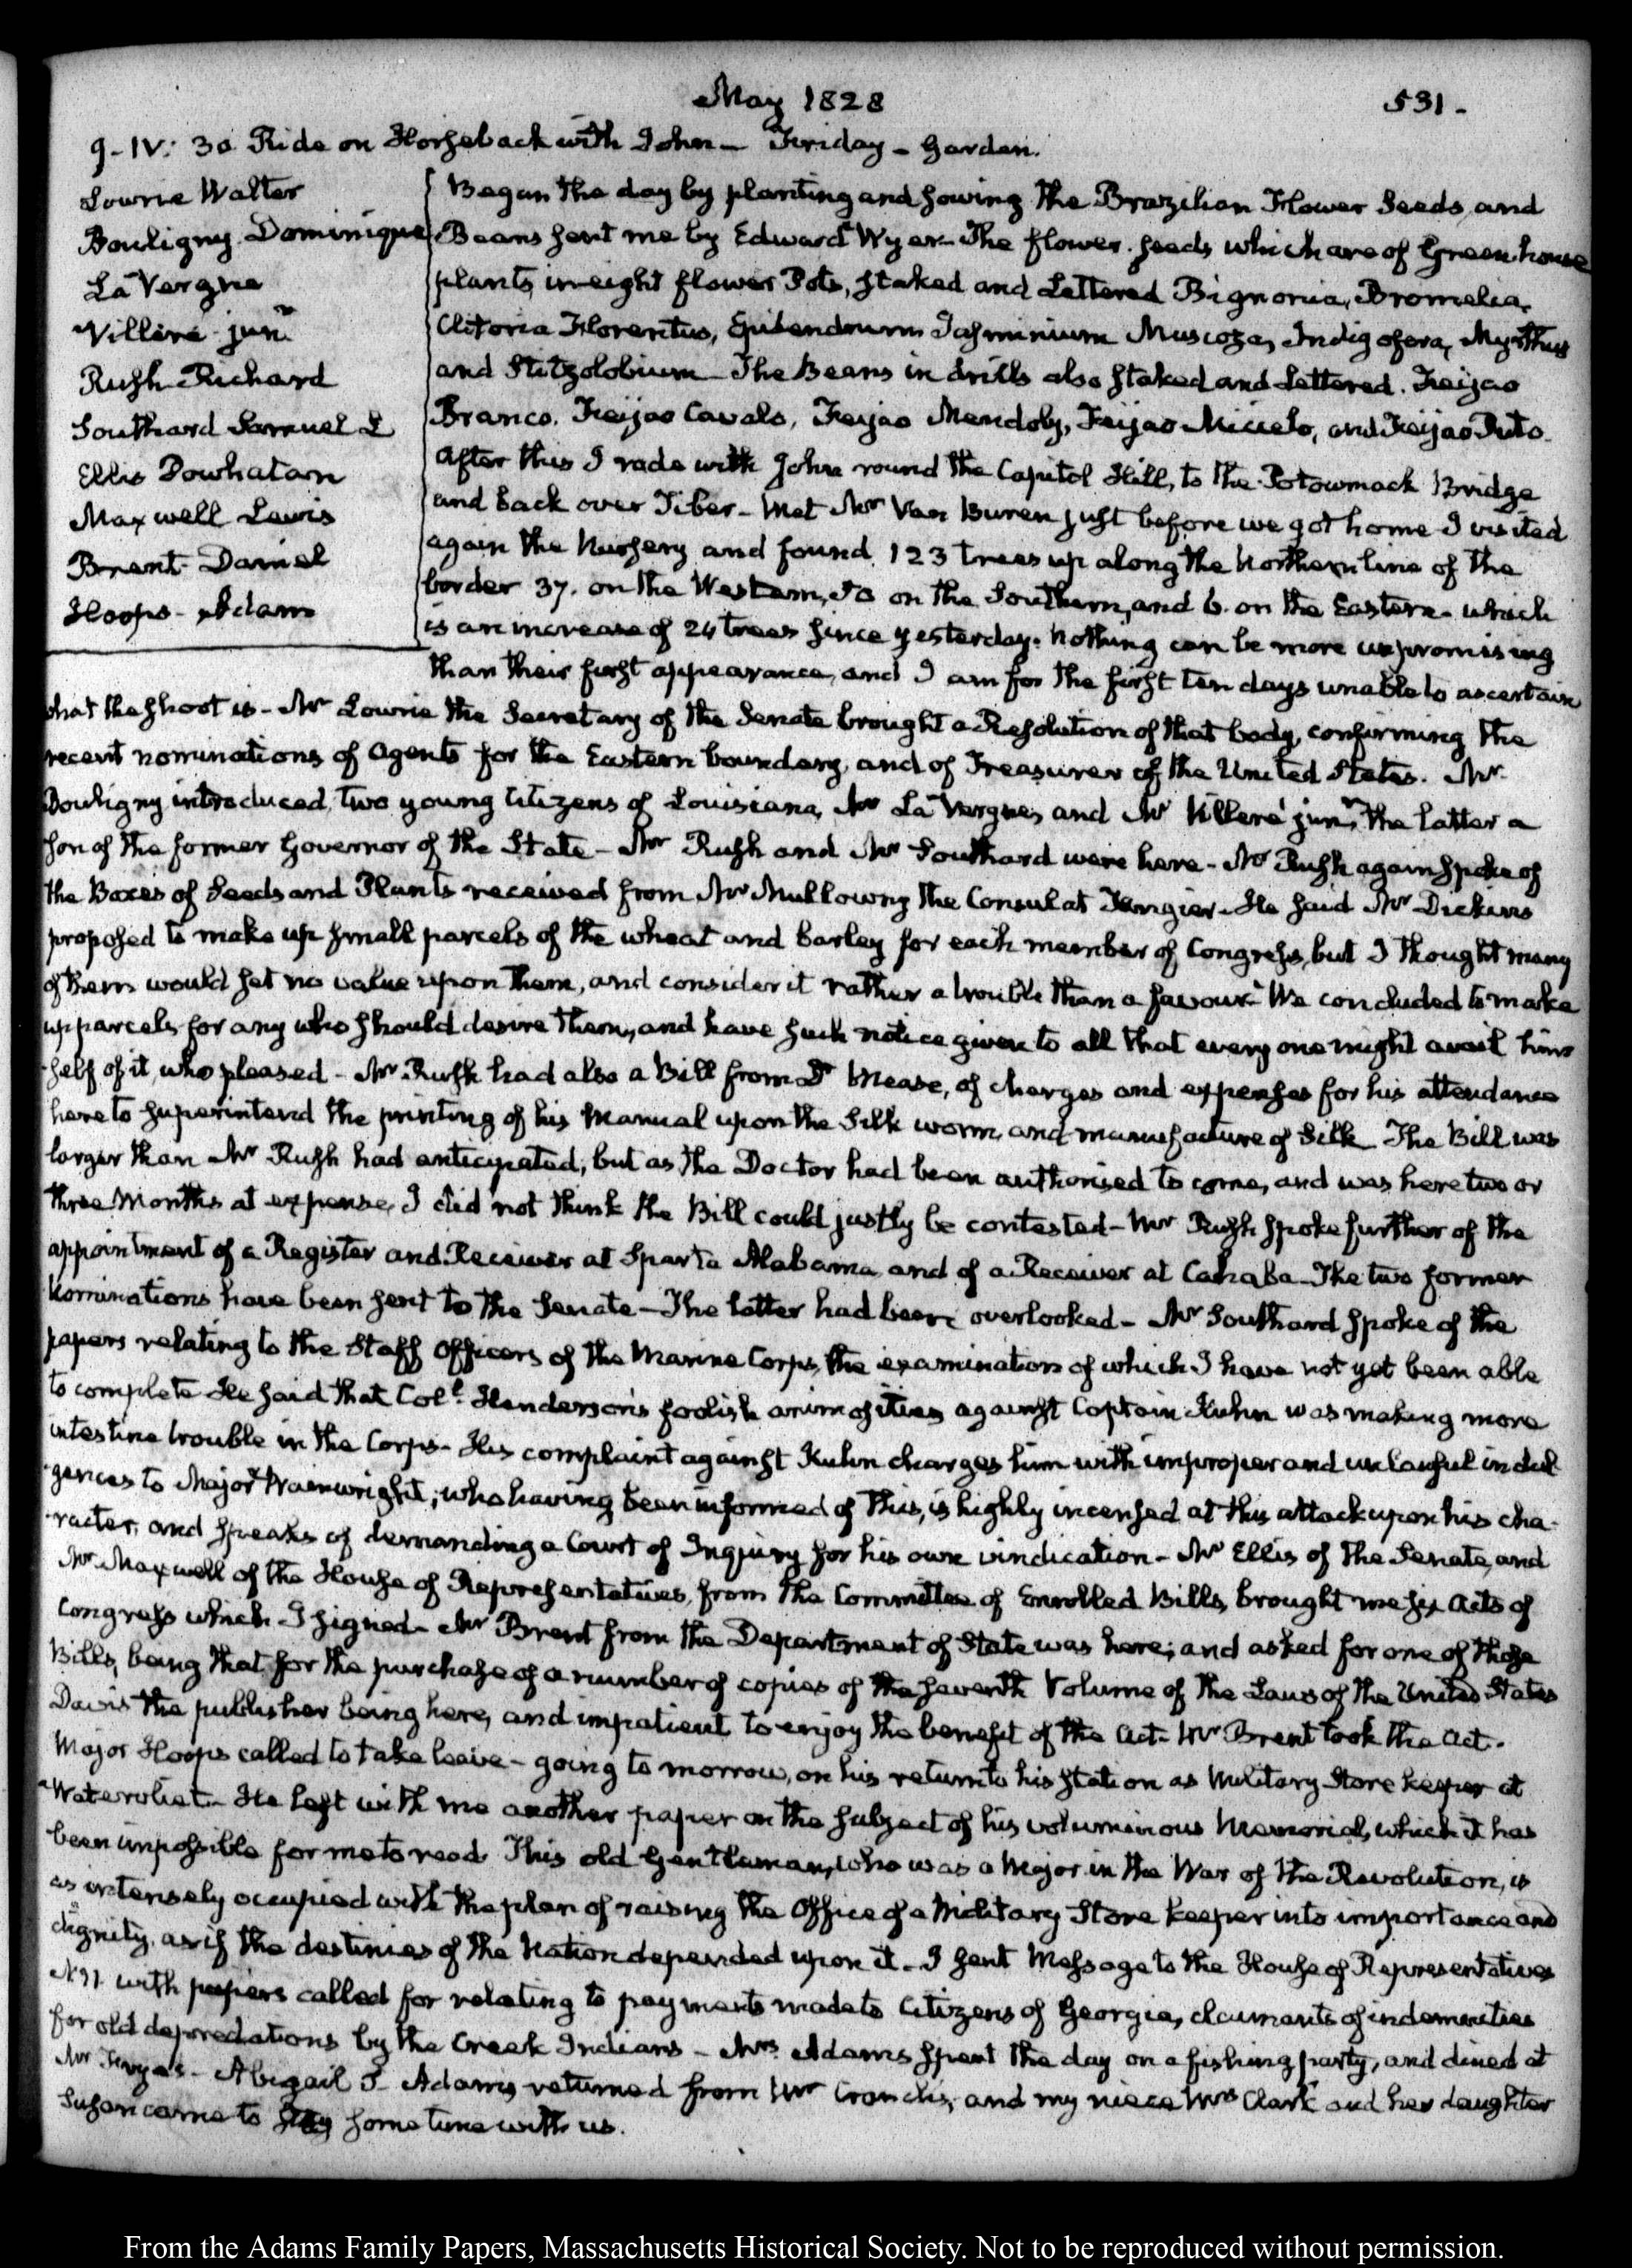 May 1828
531-
9-IV: 30 Ride on Horseback with John - Friday - Garden.
Lowrie Walter
Bouligny Dominique
La Vergne
Villere junr
Rush Richard
Southard Samuel L
Ellis Powhatan
Maxwell Lewis
Brent Daniel
Hoops - Adam
Began the day by planting and sowing the Brazilian Flower Seeds and
Beans sent me by Edward Wyer - The flower seeds which are of Green house
plants in eight flower Pots, staked and Lettered Bignonia, Bromelia,
Clitoria Florentus, Epidendrum Jasminium Muscosa, Indigofera, Myrthus
and Stitzolobium - The Beans in drills also staked and Lettered. Feijao
Branco. Feijao Cavalo, Feijao Mendoby, Feijao Miceto, and Feijao Puto.
After this I rode with John round the Capitol Hill, to the Potowmack Bridge
and back over Tiber - Met Mr Van Buren just before we got home I visited
again the Nursery and found 123 trees up along the Northern line of the
border 37. on the Western, 50 on the Southern, and 6. on the Eastern - which
is an increase of 24 trees since yesterday. Nothing can be more unpromising
than their first appearance, and I am for the first ten days unable to ascertain
what the shoot is - Mr Lowrie the Secretary of the Senate brought a Resolution of that body, confirming the
recent nominations of Agents for the Eastern boundary, and of Treasurer of the United States. Mr
Bouligny introduced two young Citizens of Louisiana, Mr La Vergne, and Mr Villeré junr, the latter a
son of the former Governor of the State - Mr Rush and Mr Southard were here - Mr Rush again spoke of
the Boxes of Seeds and Plants received from Mr Mullowny the Consul at Tangier - He said Mr Dickins
proposed to make up small parcels of the wheat and barley for each member of Congress, but I thought many
of them would set no value upon them, and consider it rather a trouble than a favour - We concluded to make
up parcels for any who should desire them, and have such notice given to all that every one might avail him-
self of it, who pleased - Mr Rush had also a Bill from Dr Mease, of charges and expenses for his attendance
here to superintend the printing of his Manual upon the Silk worm, and manufacture of Silk The Bill was
larger than Mr Rush had anticipated; but as the Doctor had been authorised to come, and was here two or
three Months at expense, I did not think the Bill could justly be contested - Mr Rush spoke further of the
appointment of a Register and Receiver at Sparta Alabama and of a Receiver at Cahaba - The two former
Nominations have been sent to the Senate - The latter had been overlooked - Mr Southard spoke of the
papers relating to the Staff Officers of the Marine Corps, the examination of which I have not yet been able
to complete He said that Coll. Henderson's foolish animosities against Captain Kuhn was making more
intestine trouble in the Corps - His complaint against Kuhn charges him with improper and unlawful indul-
gences to Major Wainwright; who having been informed of this, is highly incensed at this attack upon his cha-
racter, and speaks of demanding a Court of Inquiry for his own vindication - Mr Ellis of the Senate, and
Mr Maxwell of the House of Representatives, from the Committee of Enrolled Bills, brought me six Acts of
Congress which I signed - Mr Brent from the Department of State was here; and asked for one of those
Bills, being that for the purchase of a number of copies of the seventh Volume of the Laws of the United States
Davis the publisher being here, and impatient to enjoy the benefit of the Act - Mr Brent took the Act.
Major Hoops called to take leave - going to morrow, on his return to his station as Military Store keeper at
Watervliet - He left with me another paper on the subject of his voluminous Memorial, which it has
been impossible for me to read This old Gentleman, who was a Major in the War of the Revolution, is
as intensely occupied with the plan of raising the Office of a Military Store keeper into importance and
dignity, as if the destinies of the Nation depended upon it - I sent Message to the House of Representatives
N. 11. with papers called for relating to payments made to Citizens of Georgia, claimants of indemnities
for old depredations by the Creek Indians - Mrs Adams spent the day on a fishing party, and dined at
Mr - Abigail S. Adams returned from Mr Cranch's, and my niece Mrs Clark and her daughter
Susan came to stay some time with us.
From the Adams Family Papers, Massachusetts Historical Society. Not to be reproduced without permission.